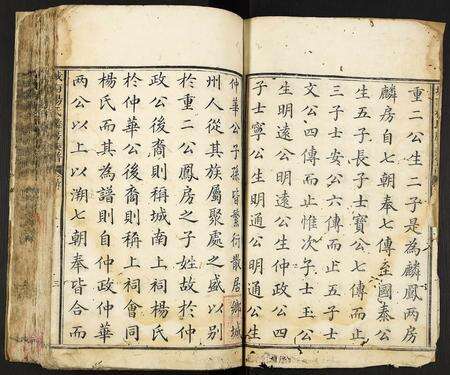 重二公生二子是為麟鳳兩房
麟房自七朝奉七傳至國泰公
生五子長子士寶公七傳而止
三子士安公六傳而止五子士
文公四傳而止惟次子士玉公
生明遠公生仲政公四
子士寧公生明通公明通公生
仲華公子孫皆繁衍散居鄉城
州人從其族屬聚處之盛以別
於重二公鳳房之子姓故於仲
政公後裔則稱城南上祠楊氏
於仲華公後裔則稱上祠會同
楊氏而其為譜則自仲政仲華
兩公以上溯七朝奉皆合而
三